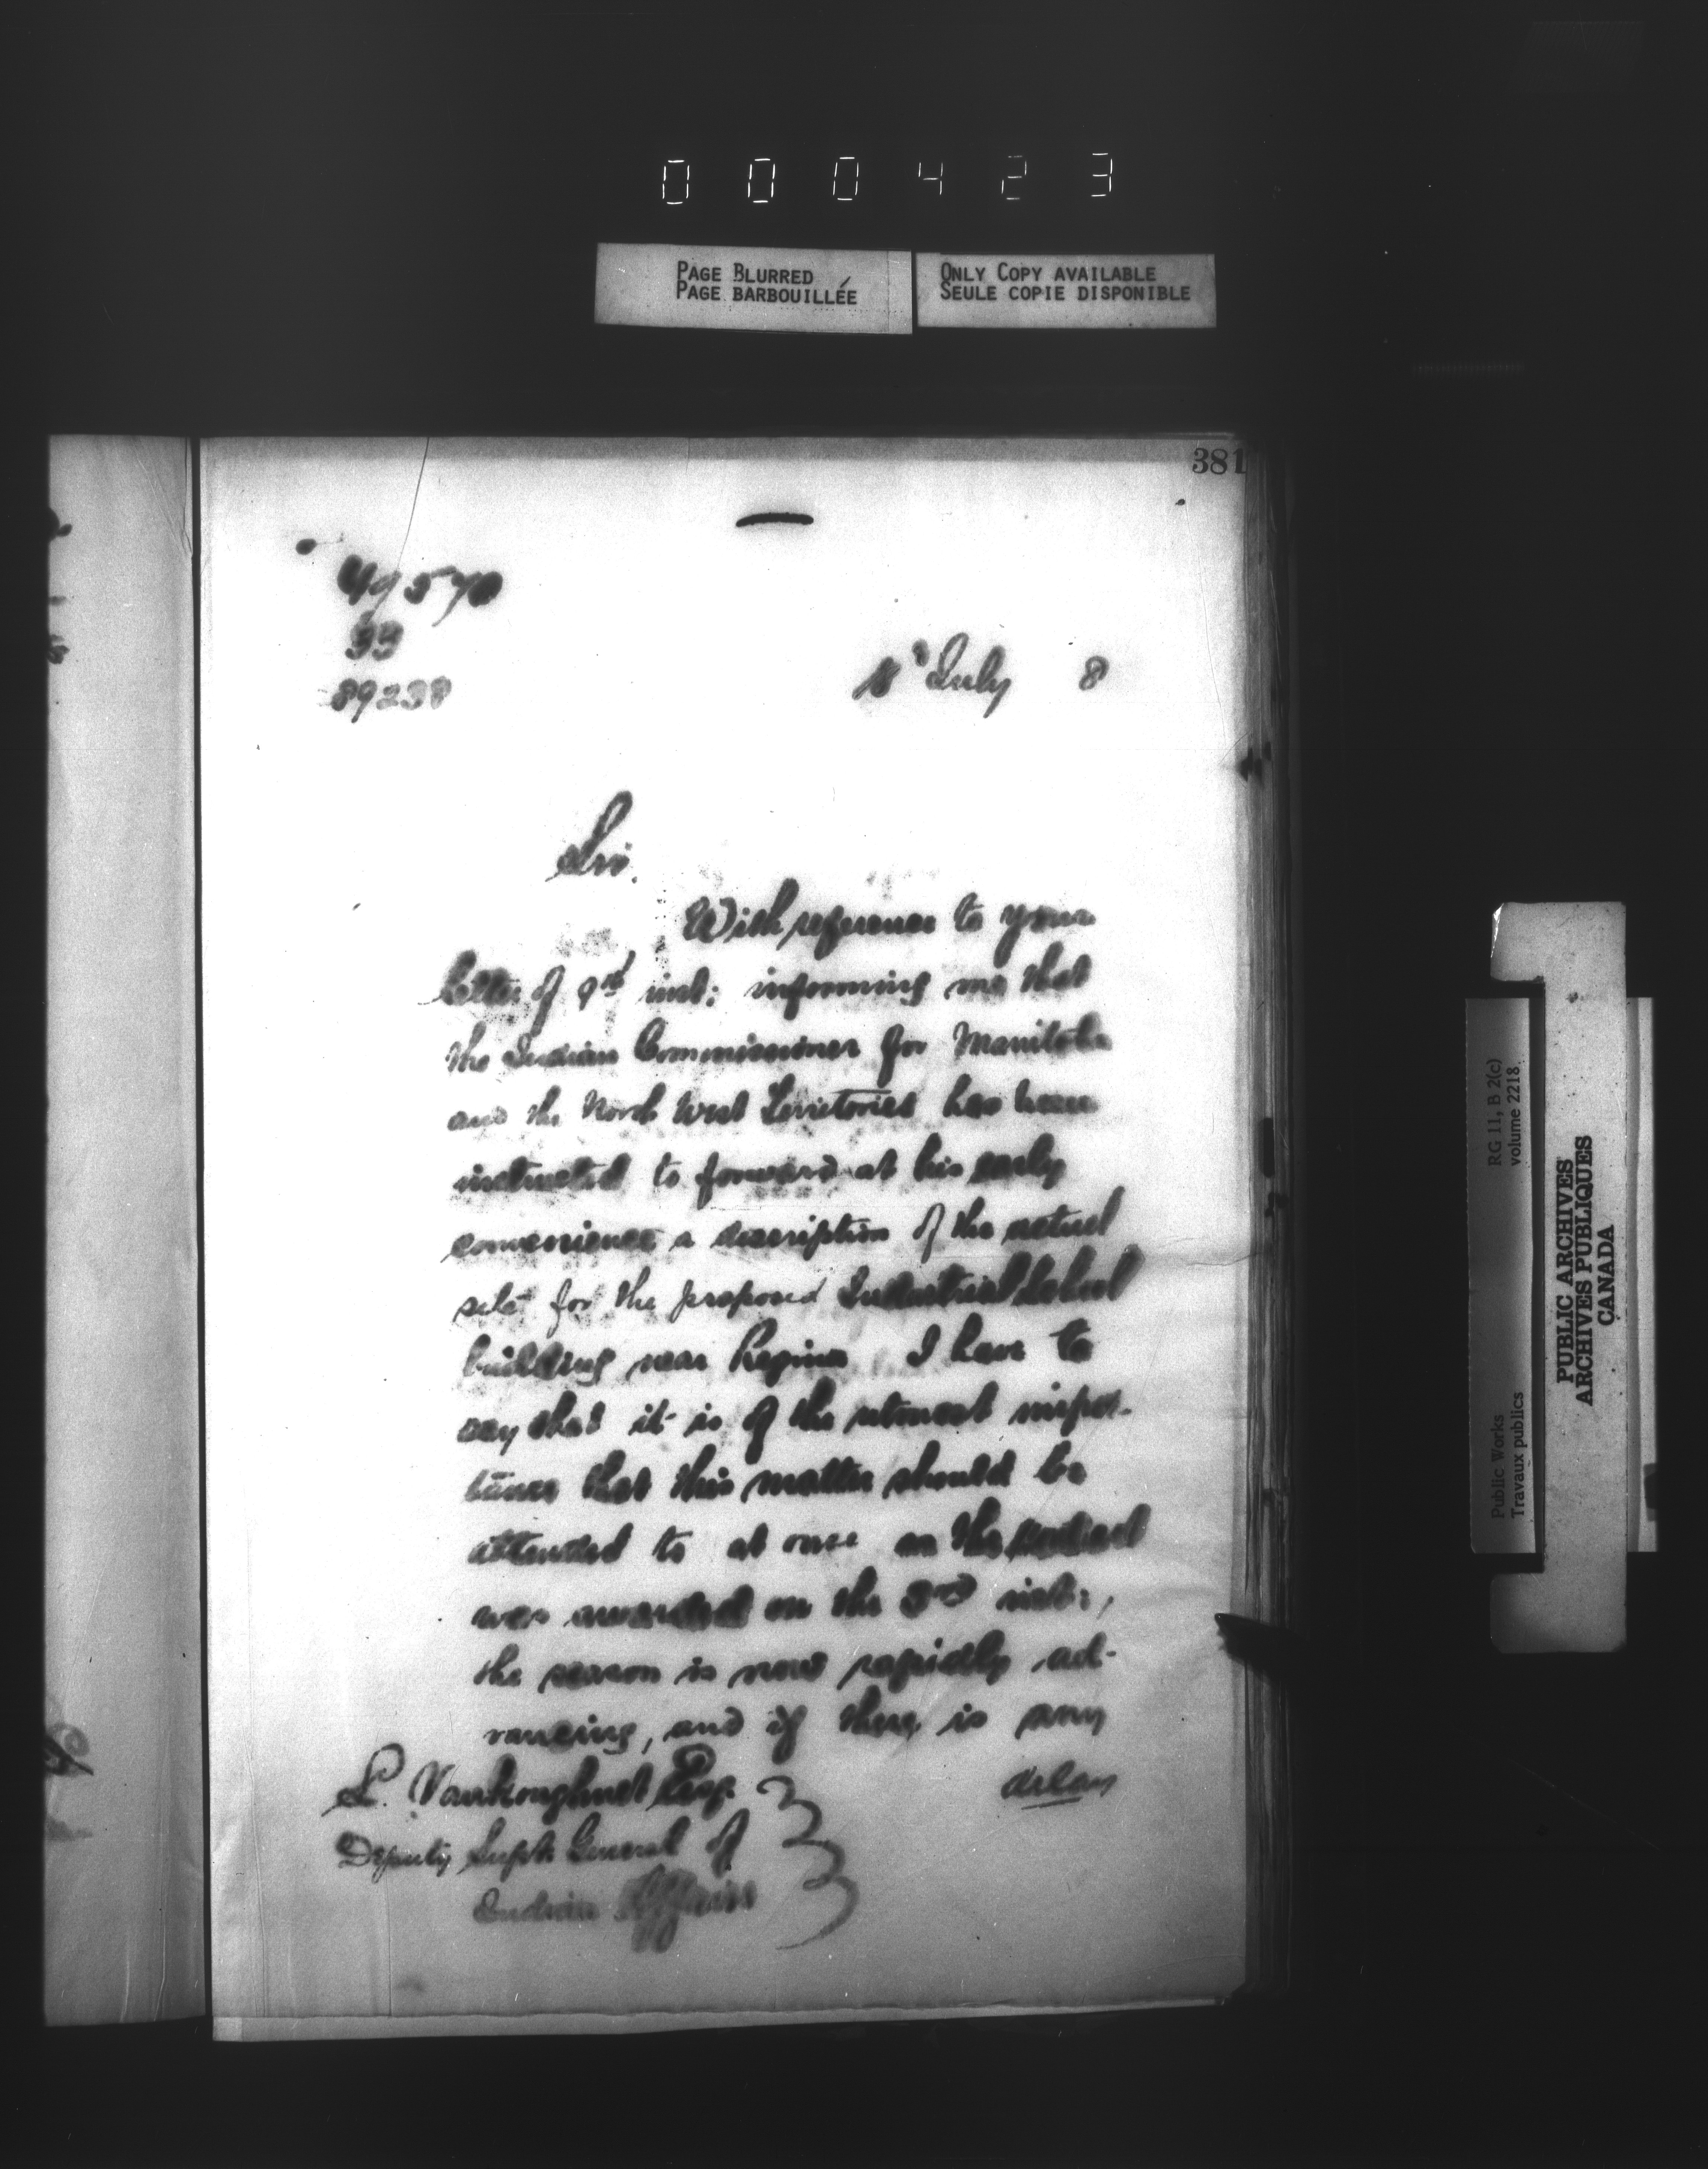 000423
PAGE BLURRED
PAGE BARBOUILLÉE
ONLY COPY AVAILABLE
SEULE COPIE DISPONIBLE
381
89238
July 8
Sir.
With reference to your
letter of inst: informing me that
the Indian Commissioner for Manitoba
and the North West Territories has been
instructed to forward at his early
convenience a description of the actual
site for the proposed Industrial School
building near Regina I have to
say that it is of the utmost impor-
tance that this matter should be
attended to at once as the contract
was awarded on the 3rd inst:,
the season is now rapidly ad-
vancing, and if there is any
delay
L. Vankoughnet Esq.
Deputy Supt. General of
Indian Affairs
Public Works
Travaux publics
RG 11, B 2(c)
volume 2218
PUBLIC ARCHIVES
ARCHIVES PUBLIQUES
CANADA